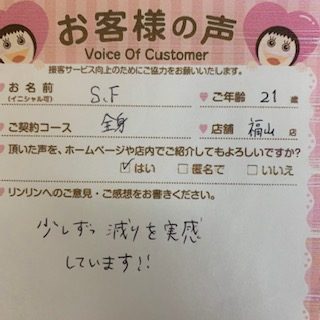 お客様の声
Voice Of Customer
接客サービス向上のためにご協力をお願いいたします。
お名前 S.F ご年齢 21 歳
(イニシャル可)
ご契約コース 全身 店舗 福山 店
頂いた声を、ホームページや店内でご紹介してもよろしいですか?
☑はい □匿名で □いいえ
リンリンへのご意見・ご感想をお書きください。
少しずつ 減りを実感
しています!!